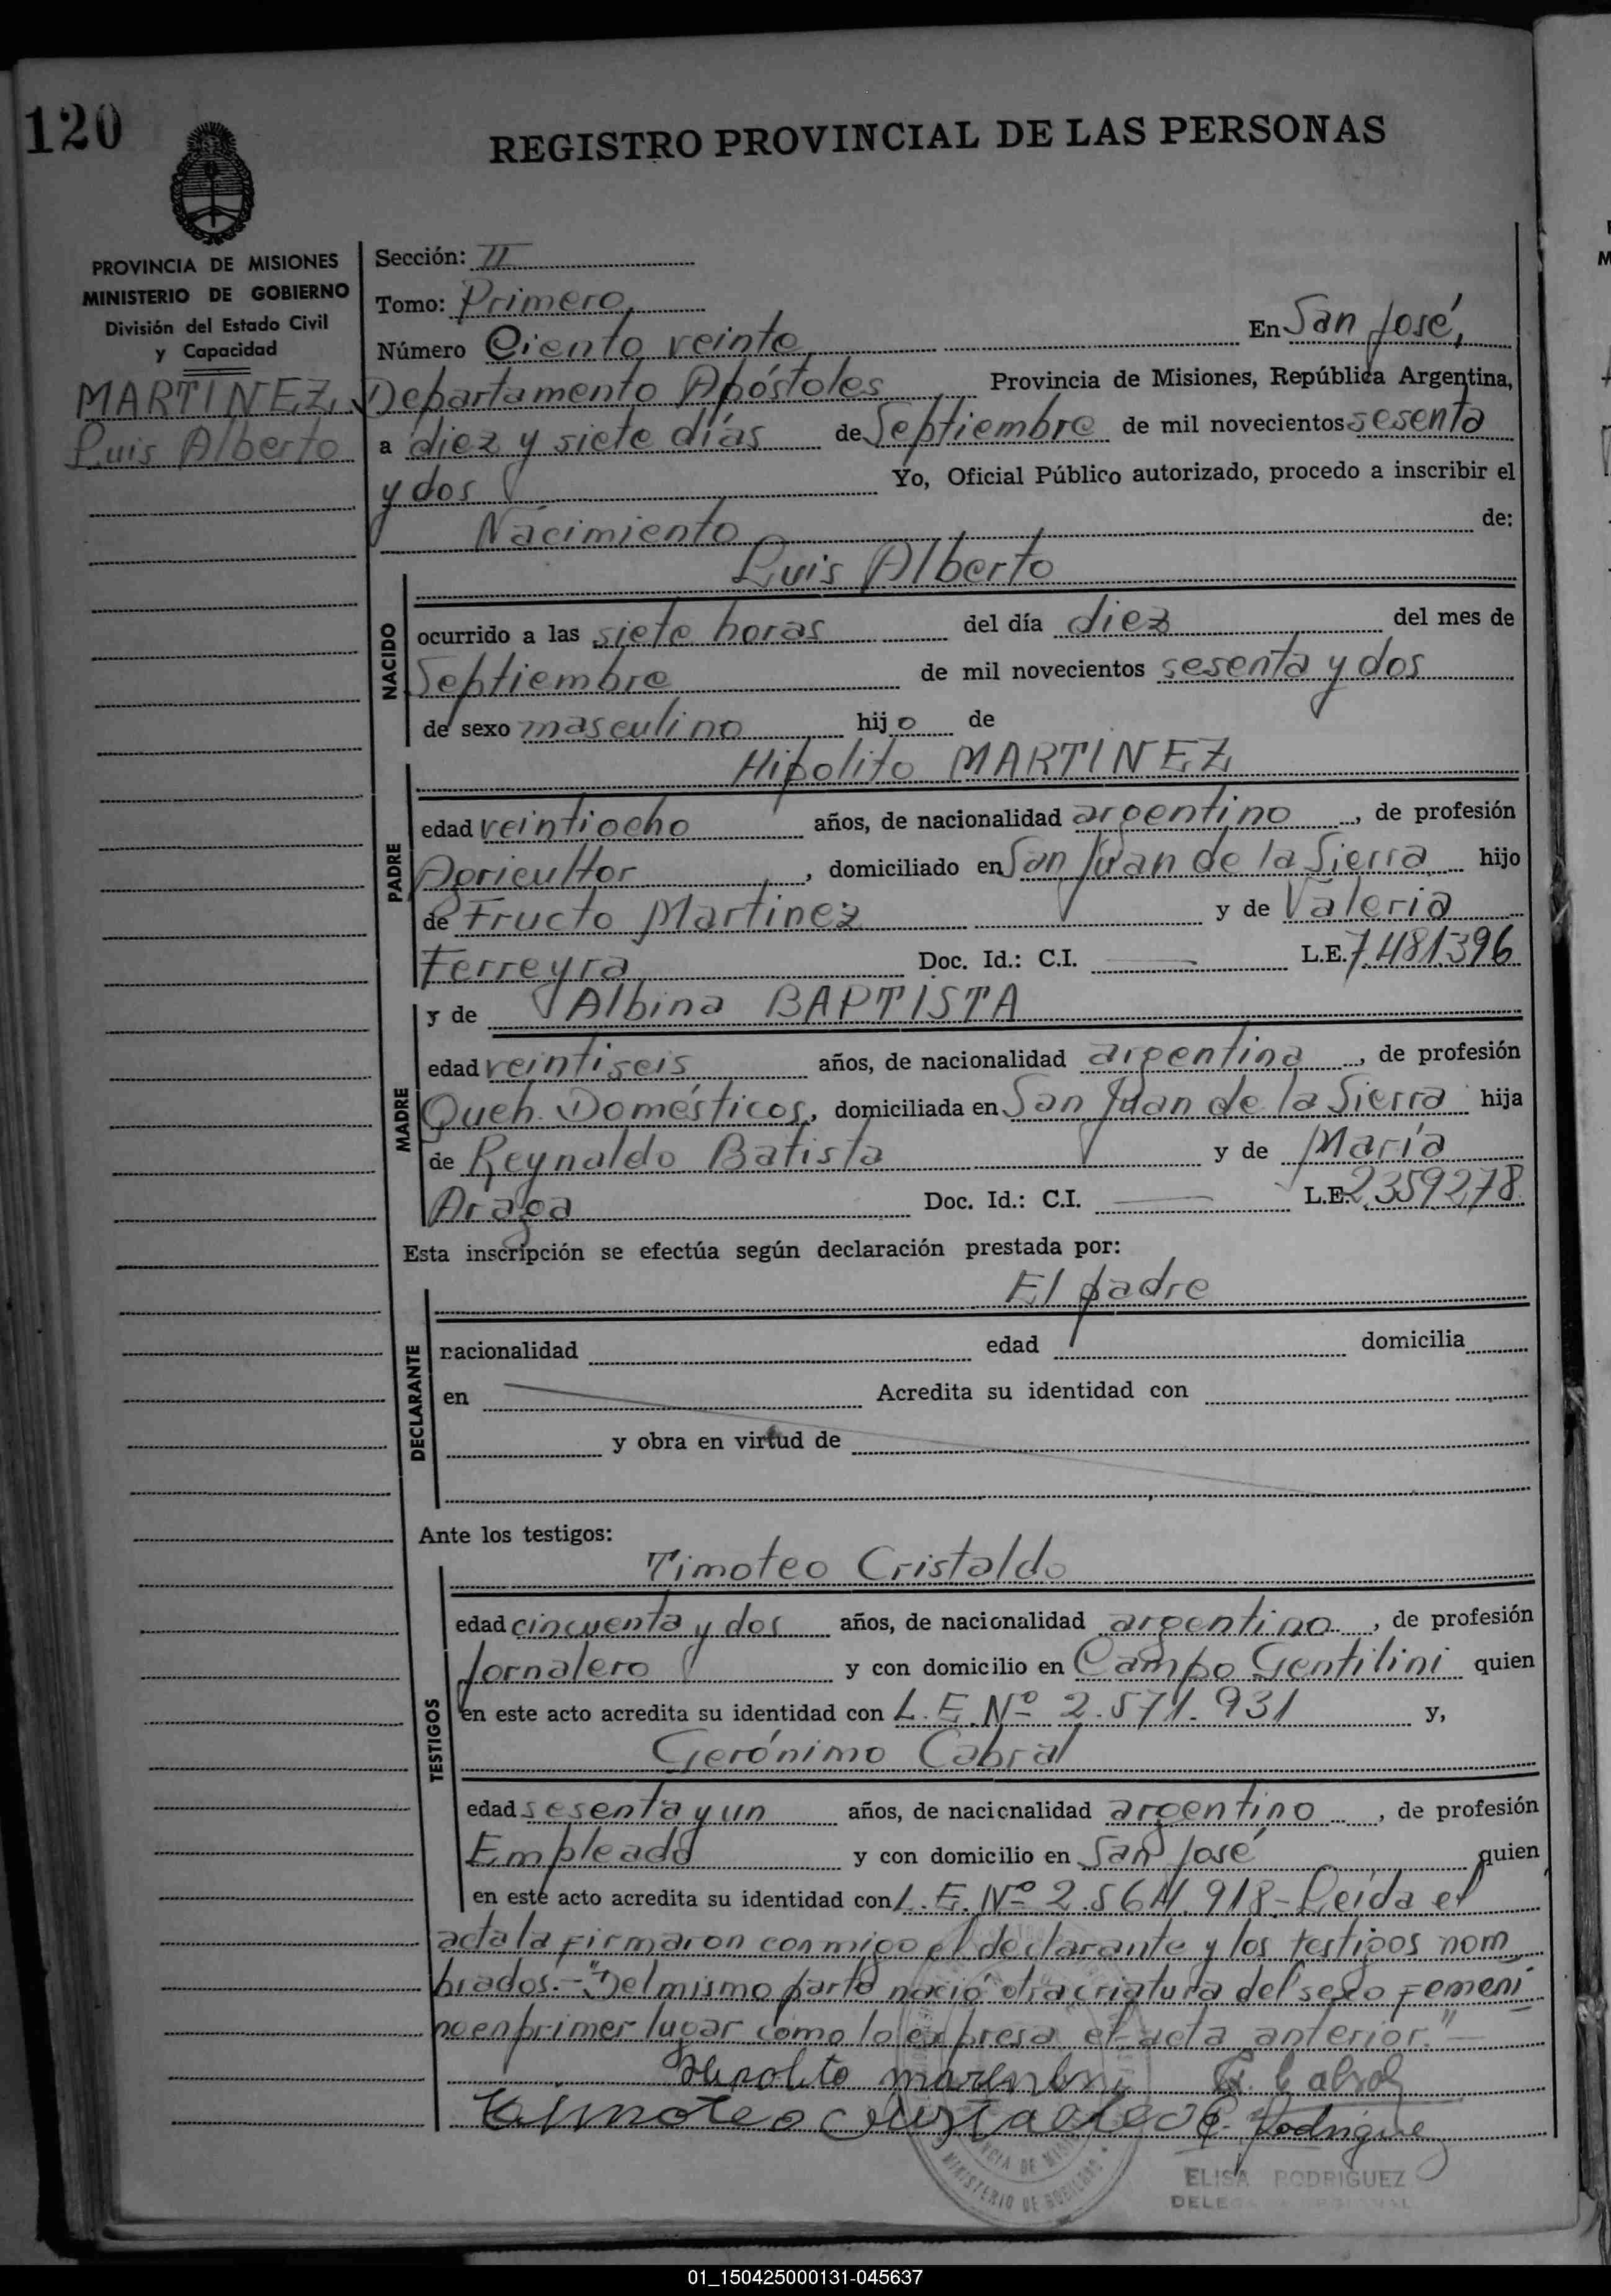 120
REGISTRO PROVINCIAL DE LAS PERSONAS
PROVINCIA DE MISIONES
MINISTERIO DE GOBIERNO
División del Estado Civil
y Capacidad
MARTINEZ,
Luis Alberto
Sección: II
Tomo: Primero,
Número Ciento veinte, En San José,
Departamento Apóstoles Provincia de Misiones, República Argentina,
a diez y siete días de Septiembre de mil novecientos sesenta
y dos Yo, Oficial Público autorizado, procedo a inscribir el
Nacimiento de:
NACIDO
Luis Alberto
ocurrido a las siete horas del día diez del mes de
Septiembre de mil novecientos sesenta y dos
de sexo masculino hijo de
PADRE
Hipolito MARTINEZ
edad veintiocho años, de nacionalidad argentino, de profesión
Agricultor, domiciliado en San Juan de la Sierra hijo
de Fructo Martinez y de Valeria
Ferreyra Doc. Id.: C.I. L.E. 7.481.396
MADRE
y de Albina BAPTISTA
edad veintiseis años, de nacionalidad argentina, de profesión
Queh. Domésticos, domiciliada en San Juan de la Sierra hija
de Reynaldo Batista y de María
Araga Doc. Id.: C.I. L.E. 2.359.278
Esta inscripción se efectúa según declaración prestada por:
DECLARANTE
El padre
nacionalidad edad domicilia
en Acredita su identidad con
y obra en virtud de
Ante los testigos:
TESTIGOS
Timoteo Cristaldo
edad cincuenta y dos años, de nacionalidad argentino, de profesión
Jornalero y con domicilio en Campo Gentilini quien
en este acto acredita su identidad con L.E. Nº 2.571.931 y,
Gerónimo Cabral
edad sesenta y un años, de nacionalidad argentino, de profesión
Empleado y con domicilio en San José quien
en este acto acredita su identidad con L.E. Nº 2.564.918.- Leída el
acta la firmaron conmigo el declarante y los testigos nom
brados.- "Del mismo parto nació otra criatura del sexo femeni
no en primer lugar como lo expresa el acta anterior."
G. Cabral
Timoteo Cristaldo E. Rodriguez
MINISTERIO DE GOBIERNO
ELISA RODRIGUEZ
01_150425000131-045637